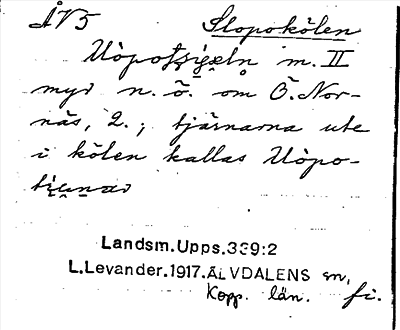 ÅV5 Slopokölen
m. II
myr n. ö. om Ö. Nor-
näs, 2.; tjärnarna ute
i kölen kallas Uòpo-
Landsm.Upps.339:2
L.Levander.1917.ÄLVDALENS sn,
Kopp. län. fi.